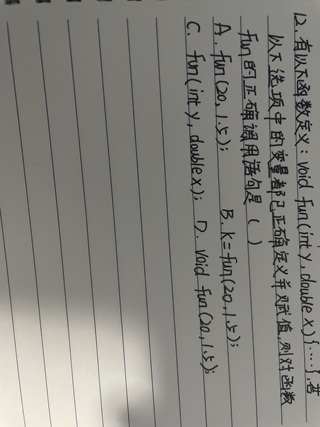 12. 有以下函数定义: void fun(int y, double x){....}, 若
以下选项中的变量都已正确定义并赋值, 则对函数
fun的正确调用语句是 ( )
A. fun(20, 1.5); B. k=fun(20, 1.5);
C. fun(int y, double x); D. void fun(20, 1.5);